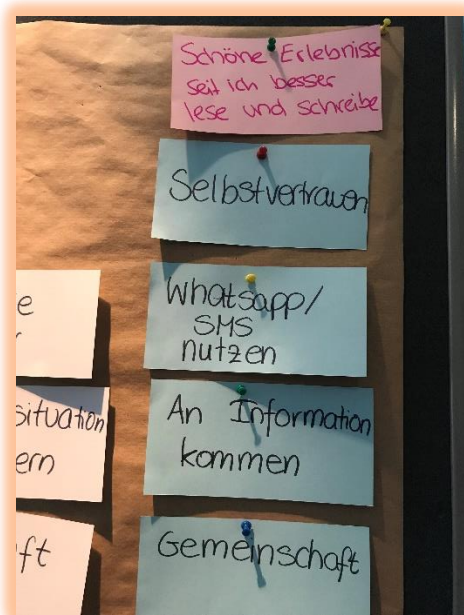 Schöne Erlebnisse
seit ich besser
lese und schreibe
Selbstvertrauen
Whatsapp/
SMS
nutzen
An Information
kommen
Gemeinschaft
e
situation
ern
ft